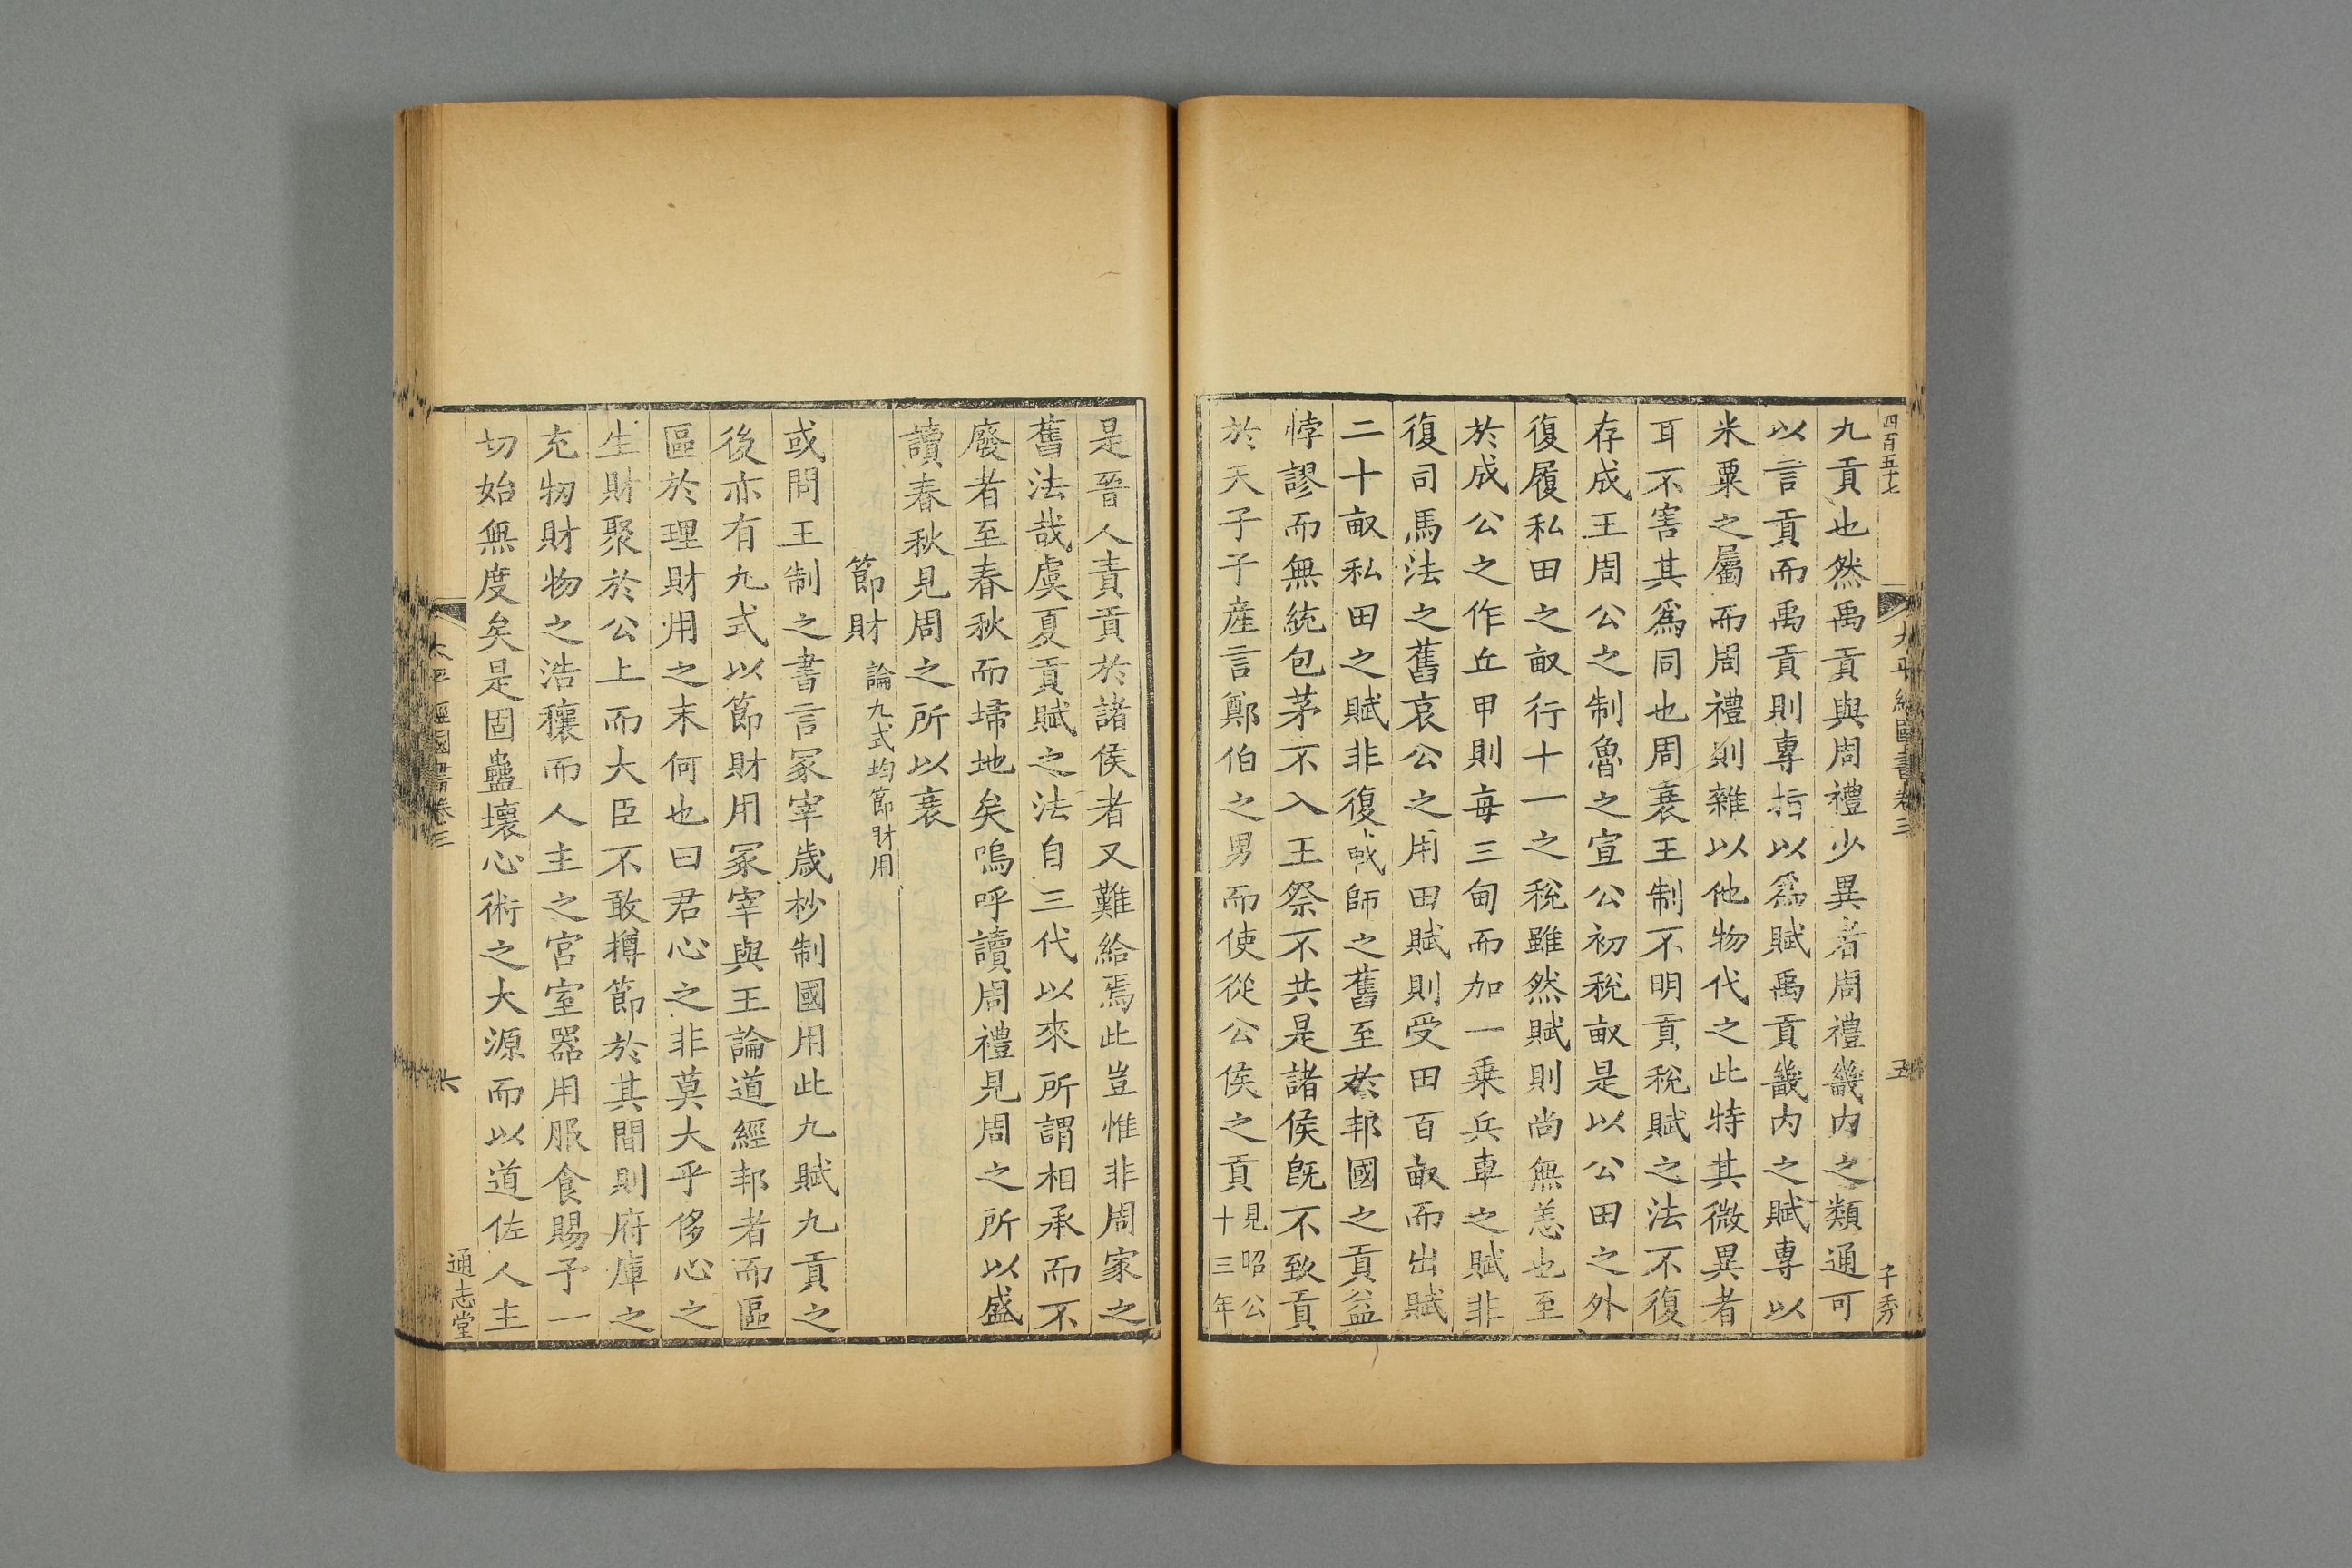 四百五十七
太平經國書卷三
五
子秀
九貢也然禹貢與周禮少異者周禮畿內之類通可
以言貢而禹貢則專指以爲賦禹貢畿内之賦専以
米粟之屬而周禮則雜以他物代之此特其微異者
耳不害其爲同也周衰王制不明貢稅賦之法不復
存成王周公之制魯之宣公初稅畝是以公田之外
復履私田之畝行十一之稅雖然賦則尚無恙也至
於成公之作丘甲則每三甸而加一乗兵車之賦非
復司馬法之舊哀公之用田賦則受田百畝而出賦
二十畝私田之賦非復師之舊至於邦國之貢益
悖謬而無統包茅不入王祭不共是諸侯旣不致貢
於天子子產言鄭伯之男而使從公侯之貢見昭公十三年
是晉人責貢於諸侯者又難給焉此豈惟非周家之
舊法哉虞夏貢賦之法自三代以來所謂相承而不
廢者至春秋而埽地矣嗚呼讀周禮見周之所以盛
讀春秋見周之所以衰
節財 論九式均節財用
或問王制之書言冢宰歲杪制國用此九賦九貢之
後亦有九式以節財用冢宰與王論道經邦者而區
區於理財用之末何也曰君心之非莫大乎侈心之
生財聚於公上而大臣不敢撙節於其間則府庫之
充牣財物之浩穰而人主之宮室器用服食賜予一
切始無度矣是固蠱壞心術之大源而以道佐人主
太平經國書卷三
六
通志堂